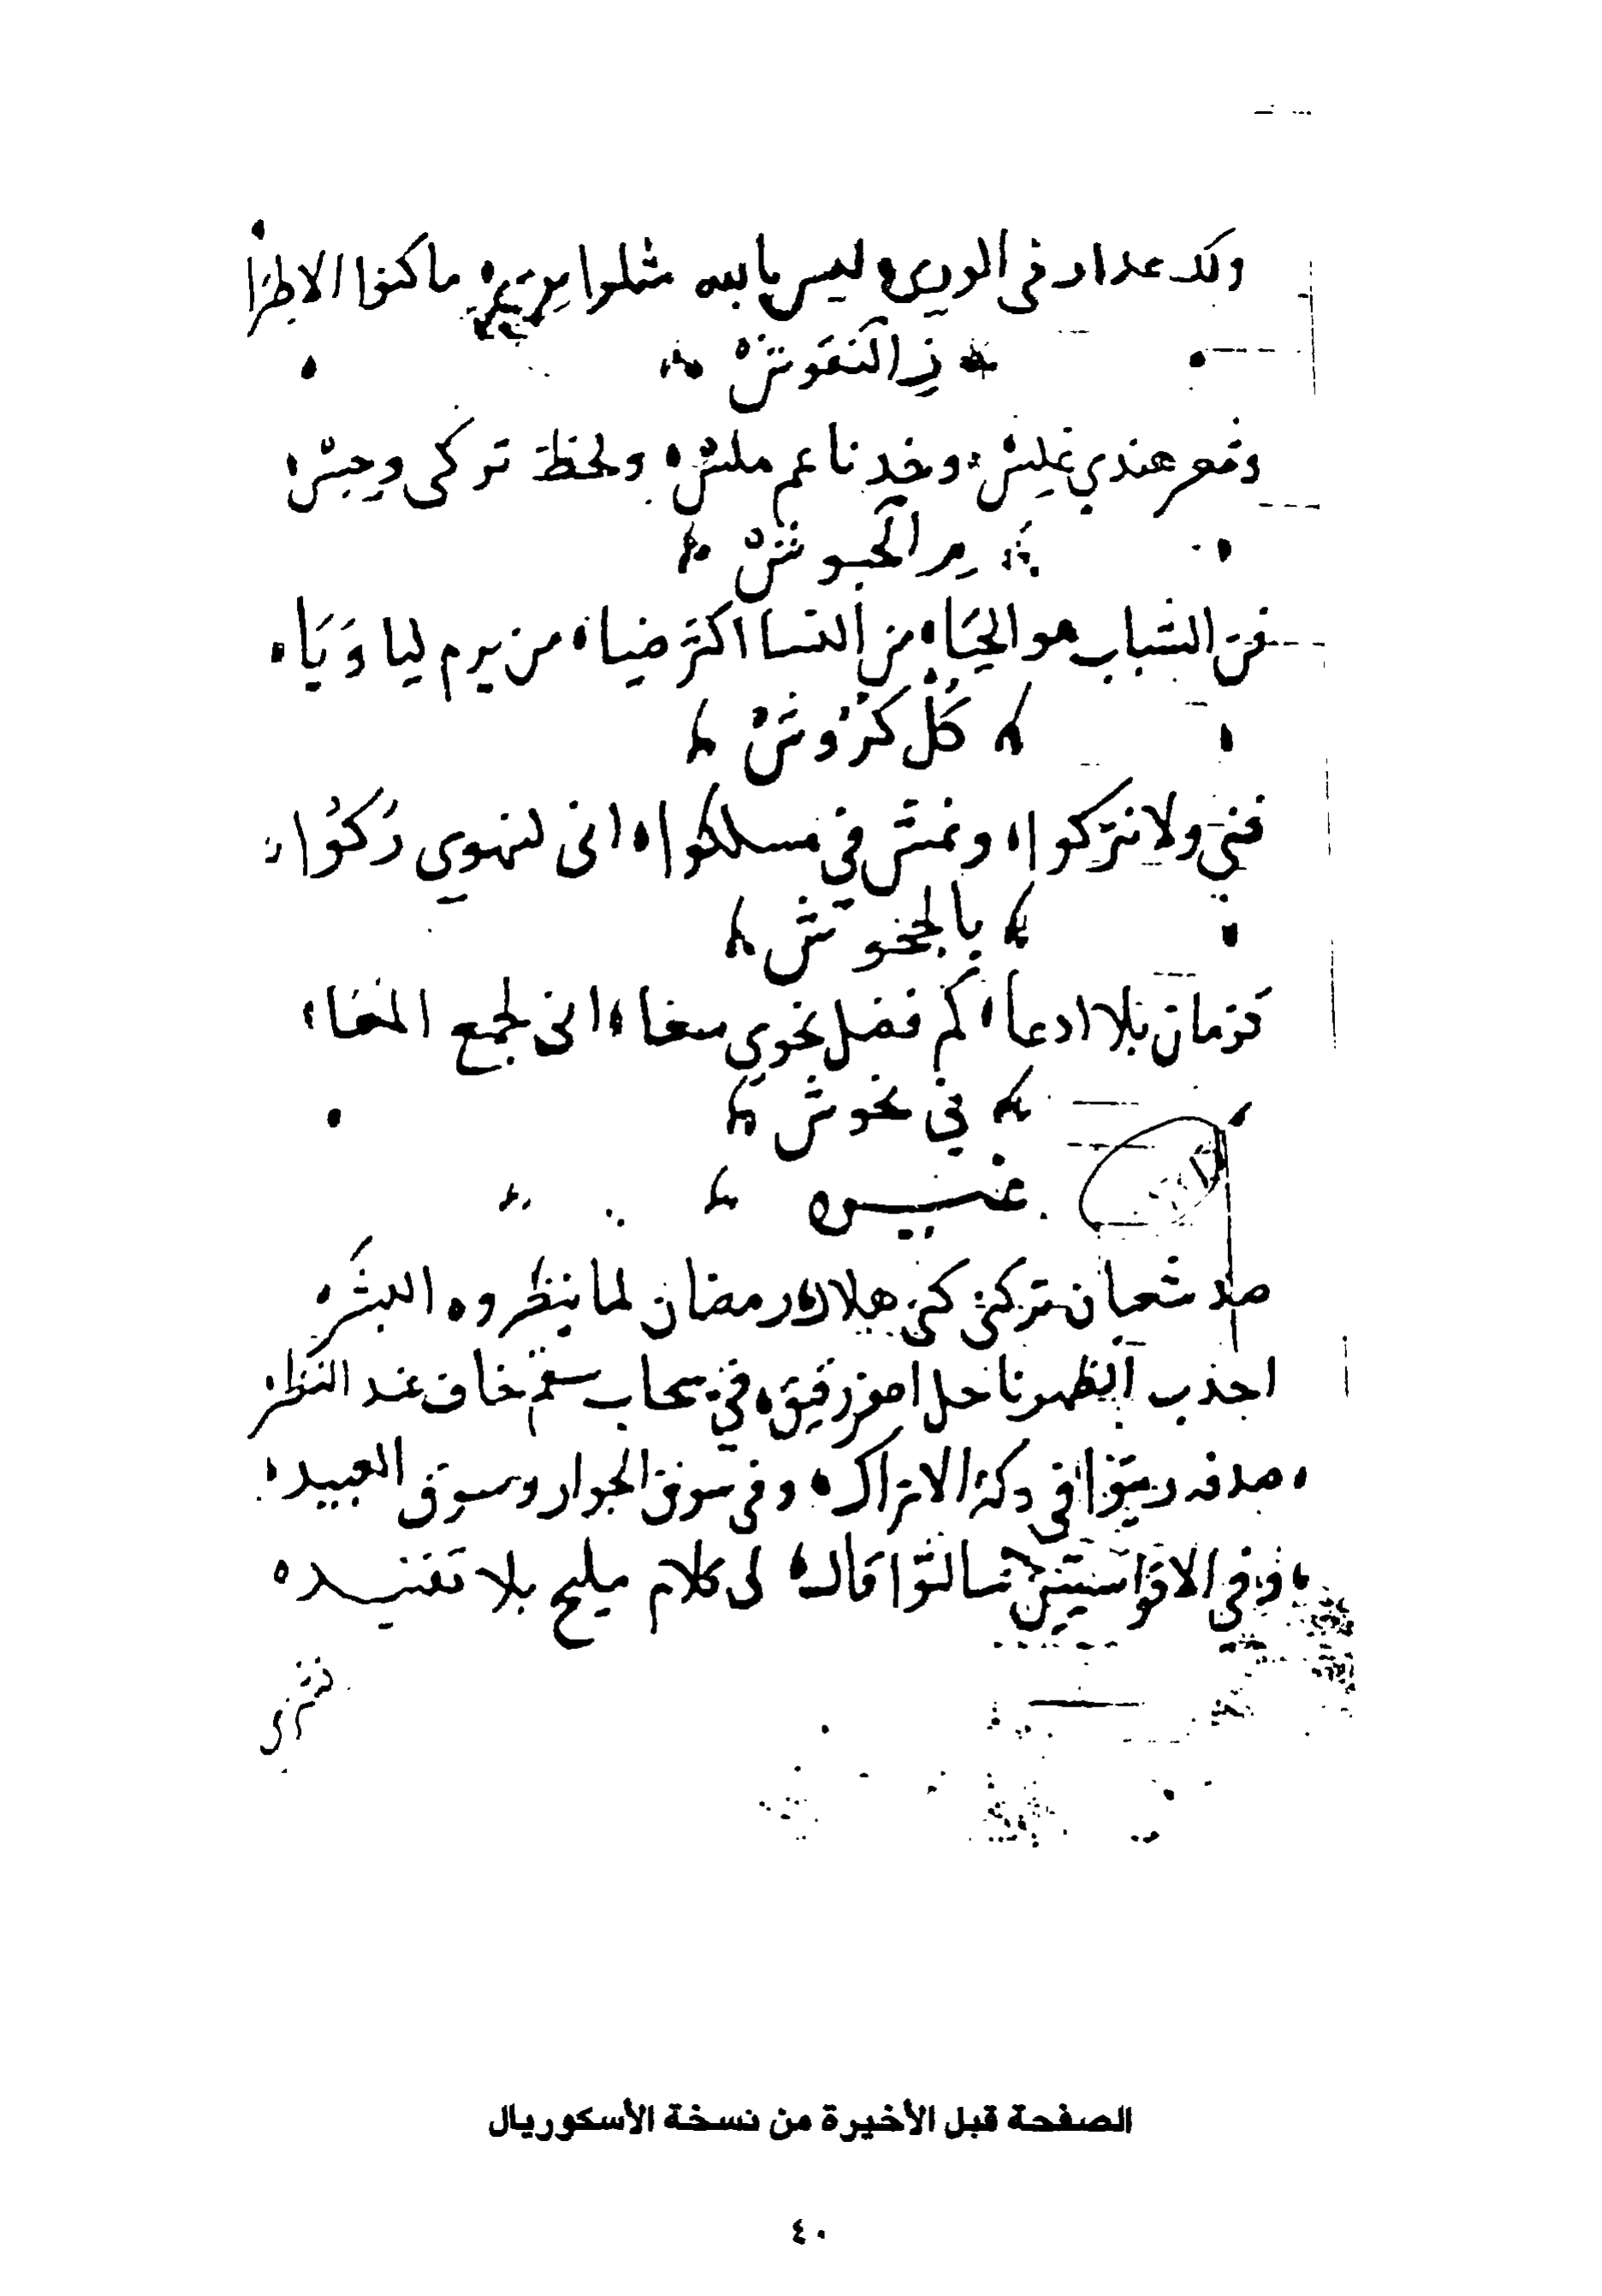 ولد عدار في الورى ليس بابيه مثلوا ما كنوا الا طرا
ز النقوش
وثغر هندي غلش وخد ناعم ملش ولحظ تركى وحبش
من الحبوش
فن الشباب هو الحياه من النسا اكثر ضياه من يرم ليا وياه
كل كروش
فني ولا نتركوا ونمش في مسلكوا انى لنهوي ركوا
بالجخوش
قزمان بلا ادعا كم فضل نحوي سعا انى لجمع
في نحوش
غيره
صد شعبان تركني كني هلال رمضان لما ينظروه البشر
احدب الظهر ناحل اصفر رقيق في سحاب سقم خاف عند النظر
صدفه ريتوا في دكة الاتراك وفي سوق الجوار وسوق العبيد
وفي سالتوا قال لى كلام مليح بلا تفنيد
الصفحة قبل الأخيرة من نسخة الأسكوريال
٤٠